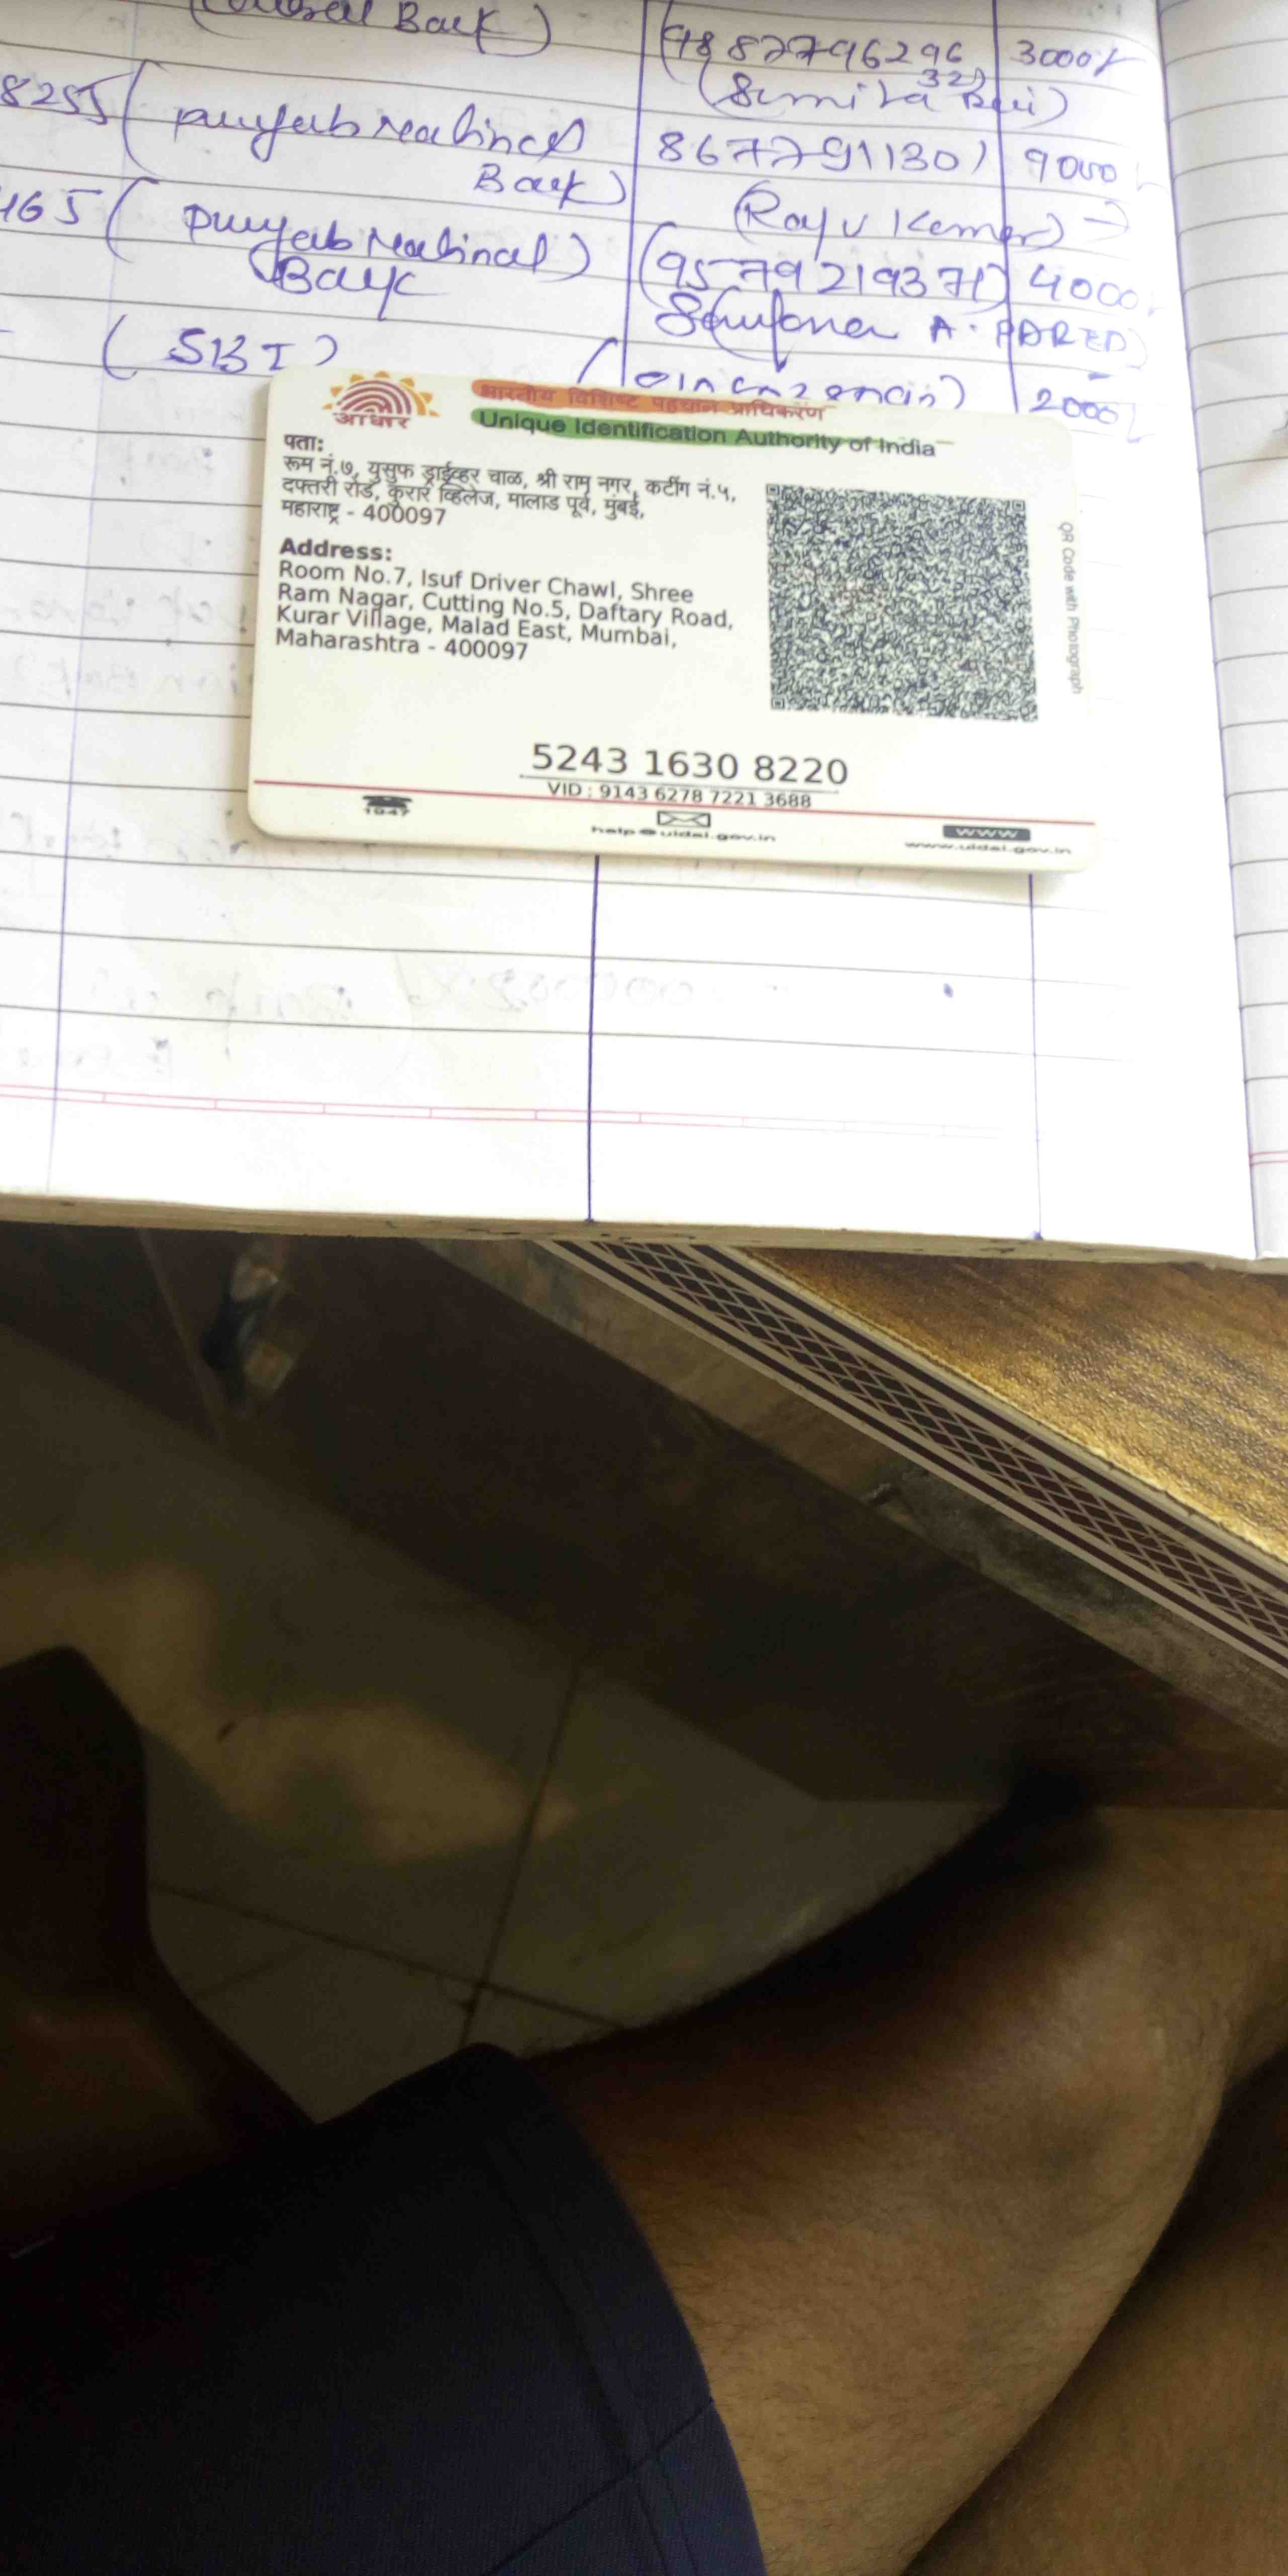 Bank)
(9887796296
3000/-
32)
8255
(punjab national
8677791130)
9000
Bank)
(Raju Kumar)
165
(punjab national)
(9579219371)
4000
Bank
A.
(SBI)
2000/-
आधार
भारतीय विशिष्ट पहचान प्राधिकरण
Unique Identification Authority of India
पता:
रूम नं.७, युसुफ ड्राईव्हर चाळ, श्री राम नगर, कटींग नं.५,
दफ्तरी रोड, कुरार व्हिलेज, मालाड पूर्व, मुंबई,
महाराष्ट्र - 400097
Address:
Room No.7, Isuf Driver Chawl, Shree
Ram Nagar, Cutting No.5, Daftary Road,
Kurar Village, Malad East, Mumbai,
Maharashtra - 400097
QR Code with Photograph
5243 1630 8220
VID : 9143 6278 7221 3688
1947
help@uidai.gov.in
www
www.uidai.gov.in